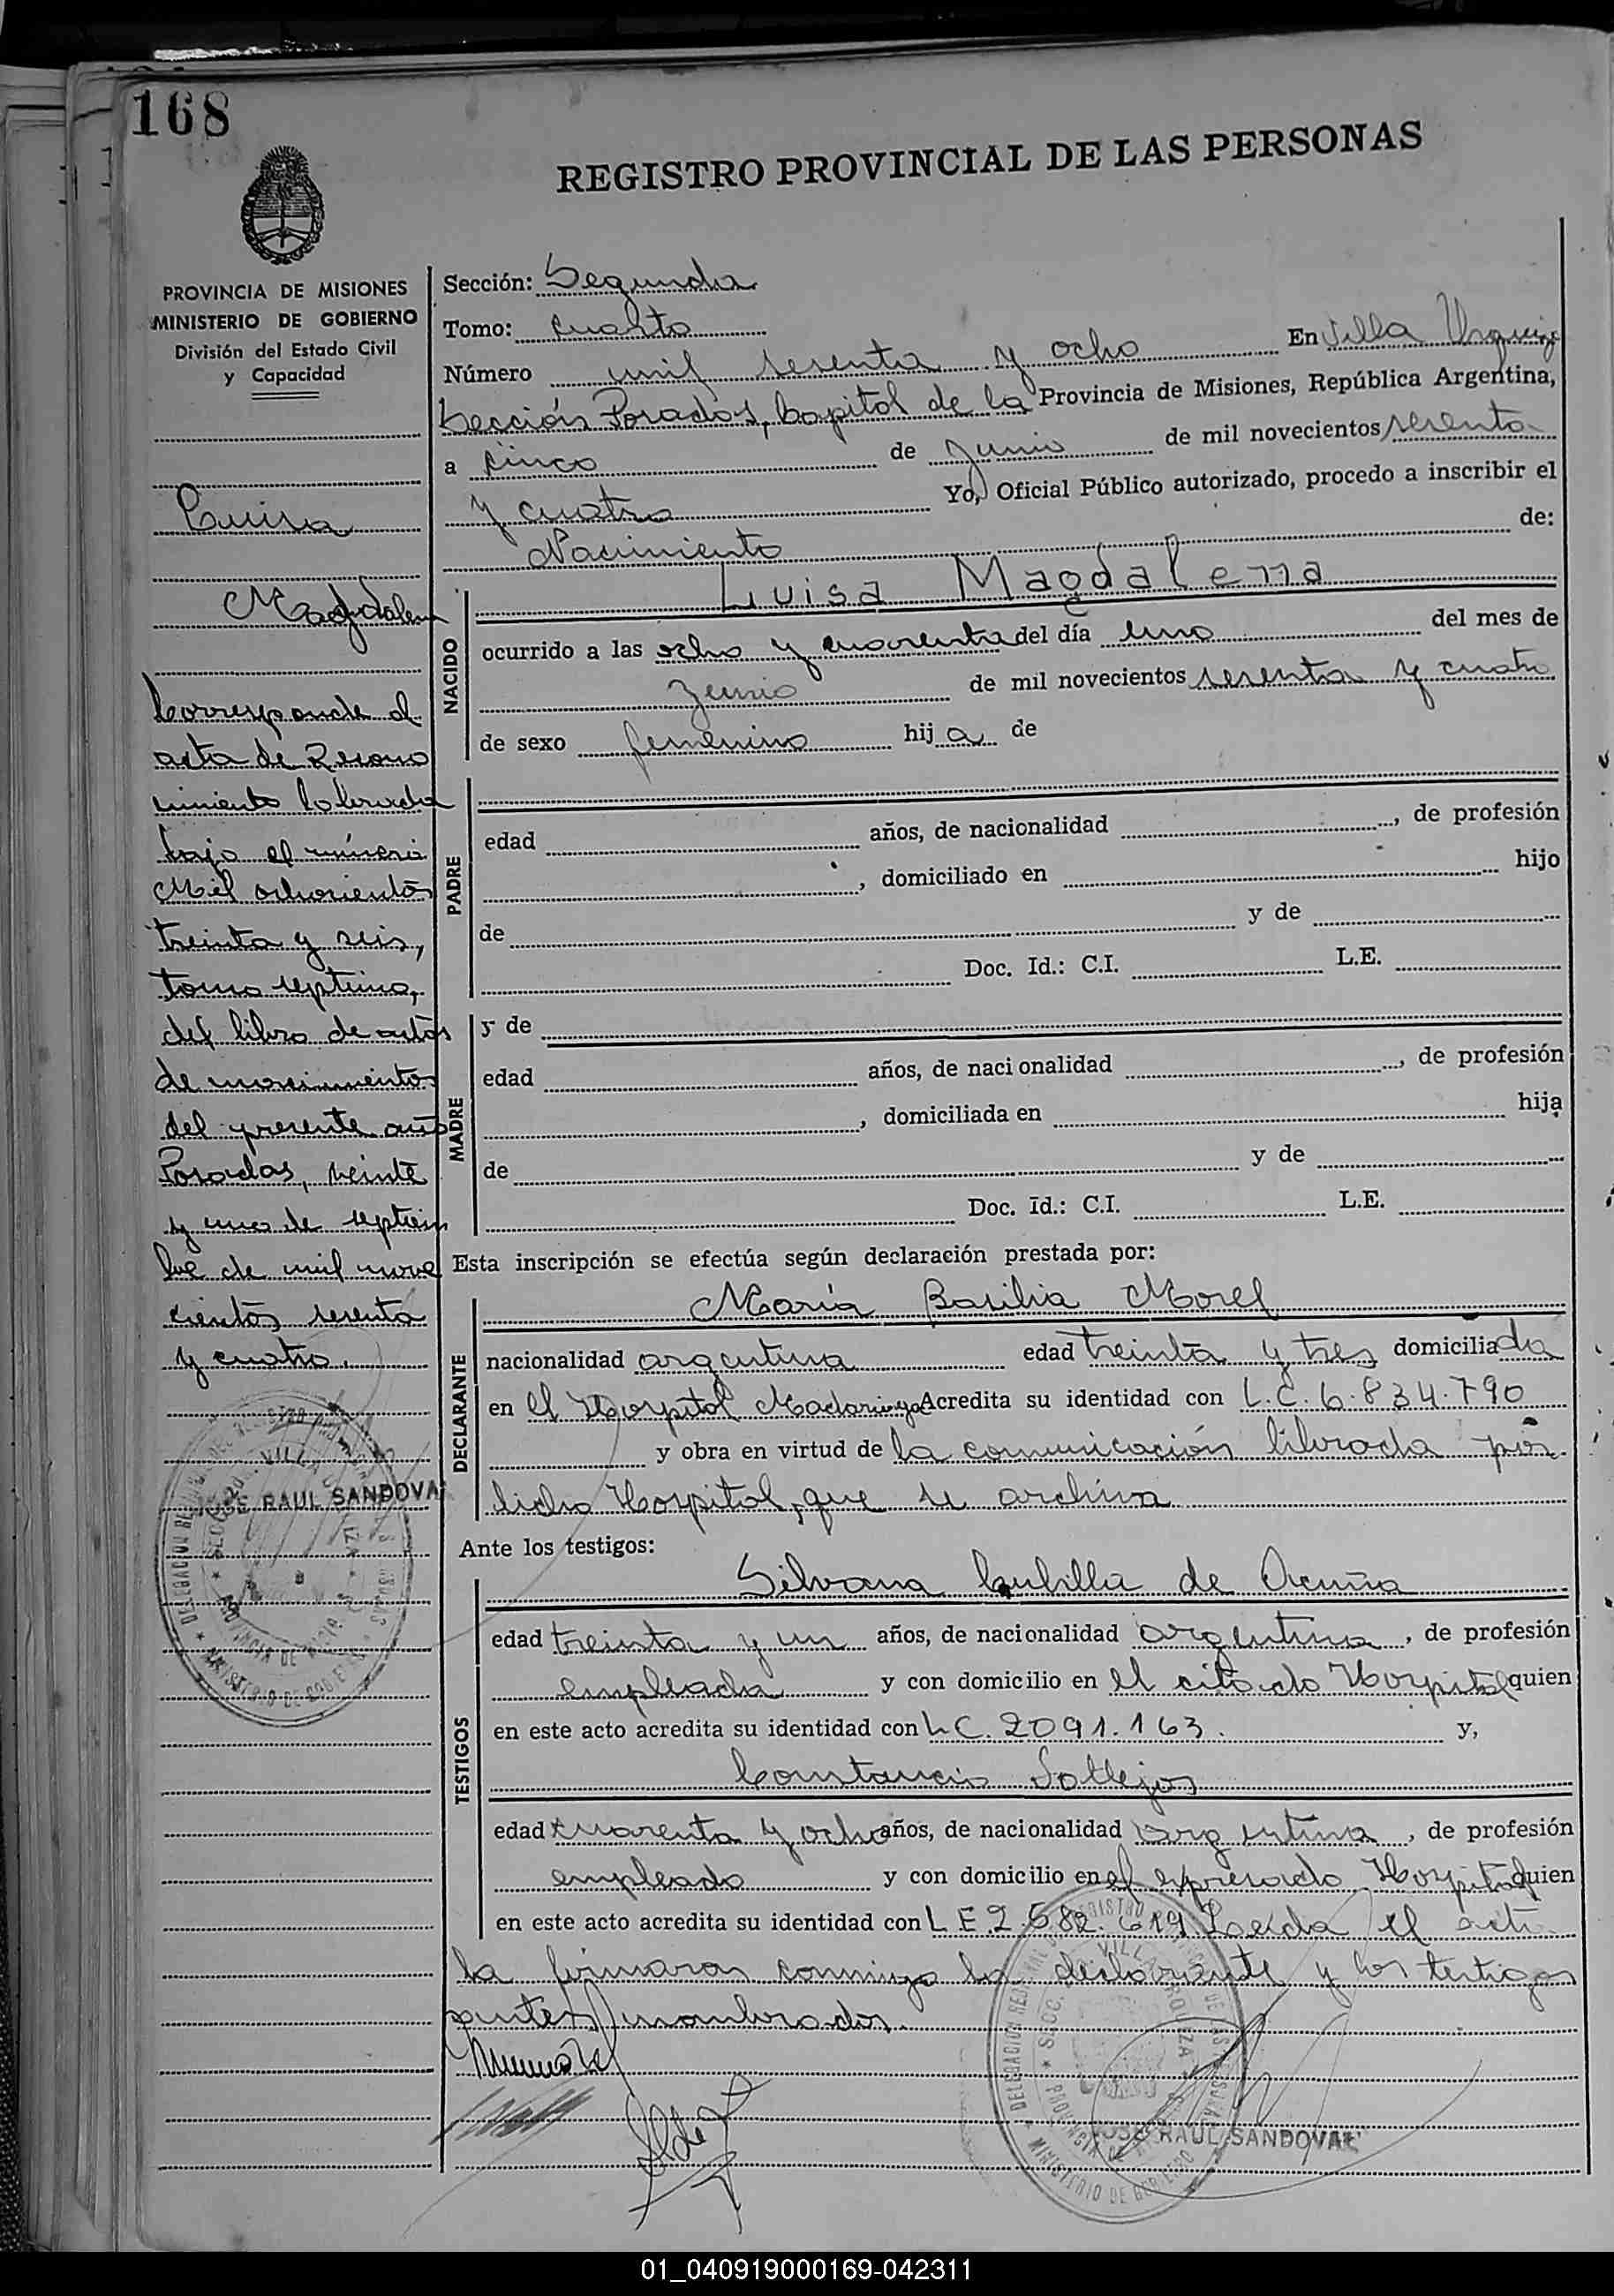 168
REGISTRO PROVINCIAL DE LAS PERSONAS
PROVINCIA DE MISIONES
MINISTERIO DE GOBIERNO
División del Estado Civil
y Capacidad
Luisa
Magdalena
Corresponde al
acta de Recono
cimiento labrada
bajo el número
Mil ochocientos
treinta y seis,
tomo septimo,
del libro de actas
de nacimientos
del presente año
Posadas, veinte
y uno de septiem
bre de mil nove
cientos sesenta
y cuatro.
RAUL SANDOVAL
Sección: Segunda
Tomo: cuarto
Número mil sesenta y ocho En Villa Urquiza
Sección Posadas, Capital de la Provincia de Misiones, República Argentina,
a cinco de Junio de mil novecientos sesenta
y cuatro Yo, Oficial Público autorizado, procedo a inscribir el
Nacimiento de:
NACIDO
Luisa Magdalena
ocurrido a las ocho y cuarenta del día uno del mes de
Junio de mil novecientos sesenta y cuatro
de sexo femenino hija de
PADRE
edad años, de nacionalidad , de profesión
, domiciliado en hijo
de y de
Doc. Id.: C.I. L.E.
MADRE
y de
edad años, de nacionalidad , de profesión
, domiciliada en hija
de y de
Doc. Id.: C.I. L.E.
Esta inscripción se efectúa según declaración prestada por:
DECLARANTE
María Basilia Morel
nacionalidad argentina edad treinta y tres domiciliada
en el Hospital Madariaga Acredita su identidad con L.C. 6.834.790
y obra en virtud de la comunicación librada por
dicho Hospital, que se archiva
Ante los testigos:
TESTIGOS
Silvana Cubilla de Acuña
edad treinta y un años, de nacionalidad argentina, de profesión
empleada y con domicilio en el citado Hospital quien
en este acto acredita su identidad con L C. 2091.163. y,
Constancio Vallejos
edad cuarenta y ocho años, de nacionalidad argentina, de profesión
empleado y con domicilio en el expresado Hospital quien
en este acto acredita su identidad con L E 2.582.619 Leída el acta
la firmaron conmigo la declarante y los testigos
antes nombrados.
JOSE RAUL SANDOVAL
01_040919000169-042311